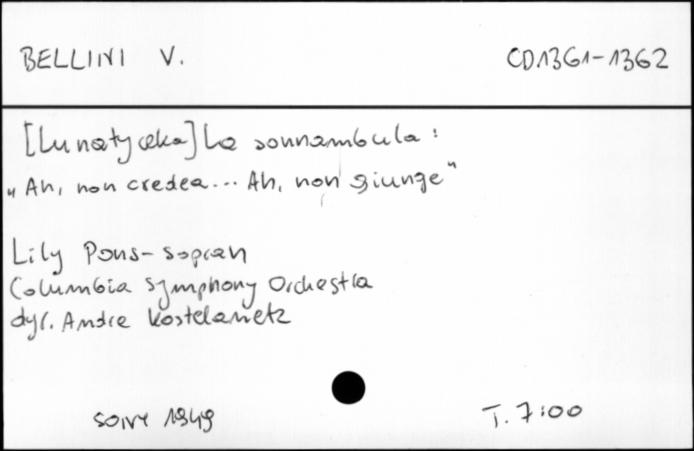 BELLINI V. CD1361-1362
[Lunatyczka] La sonnambula:
„Ah, non credea... Ah, non giunge"
Lily Pons- sopran
Columbia Symphony Orchestra
dyr. Andre Kostelanetz
SONY 1949 T. 7:00